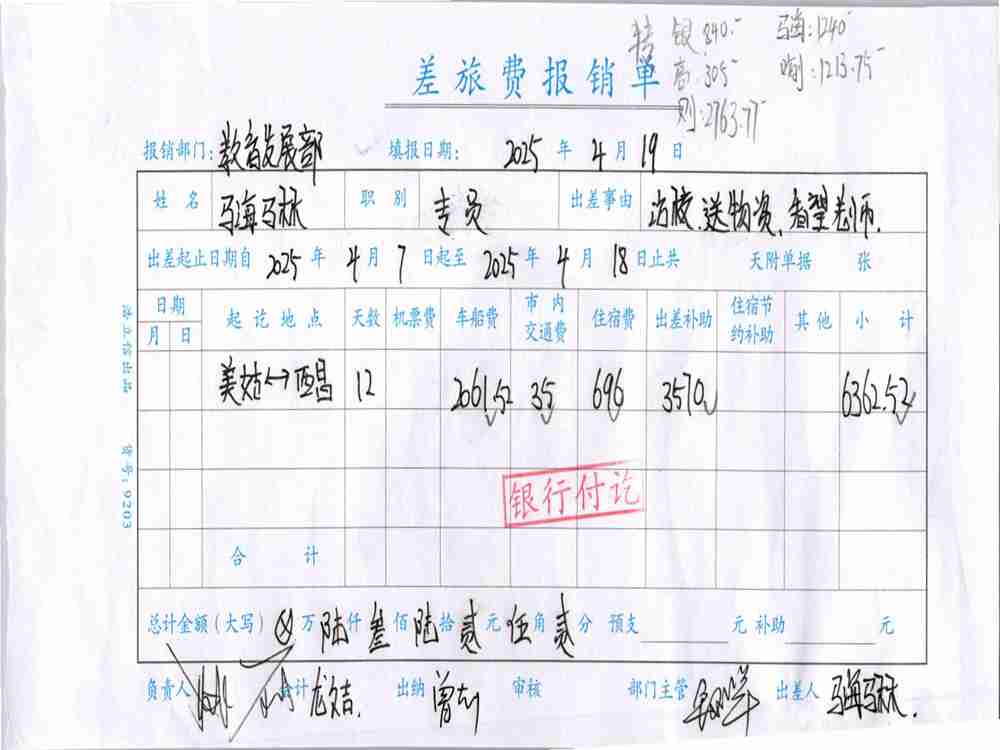 银840.- 马海:1240-
高.305- :1213.75-
则:2763.77-
差旅费报销单
报销部门:教育发展部 填报日期: 2025年4月19日
姓名 马海马林 职别 专员 出差事由 访校.送物资.看望老师.
出差起止日期自2025年4月7日起至2025年4月18日止共 天附单据 张
日期 起讫地点 天数 机票费 车船费 市内交通费 住宿费 出差补助 住宿节约补助 其他 小计
月 日
美姑↔西昌 12 2061.52 35 696 3570 6362.52
银行付讫
合计
总计金额(大写) ⊗万陆仟叁佰陆拾贰元伍角贰分 预支 元 补助 元
负责人 会计 出纳 审核 部门主管 出差人 马海马林.
浩立信出品 货号:9203